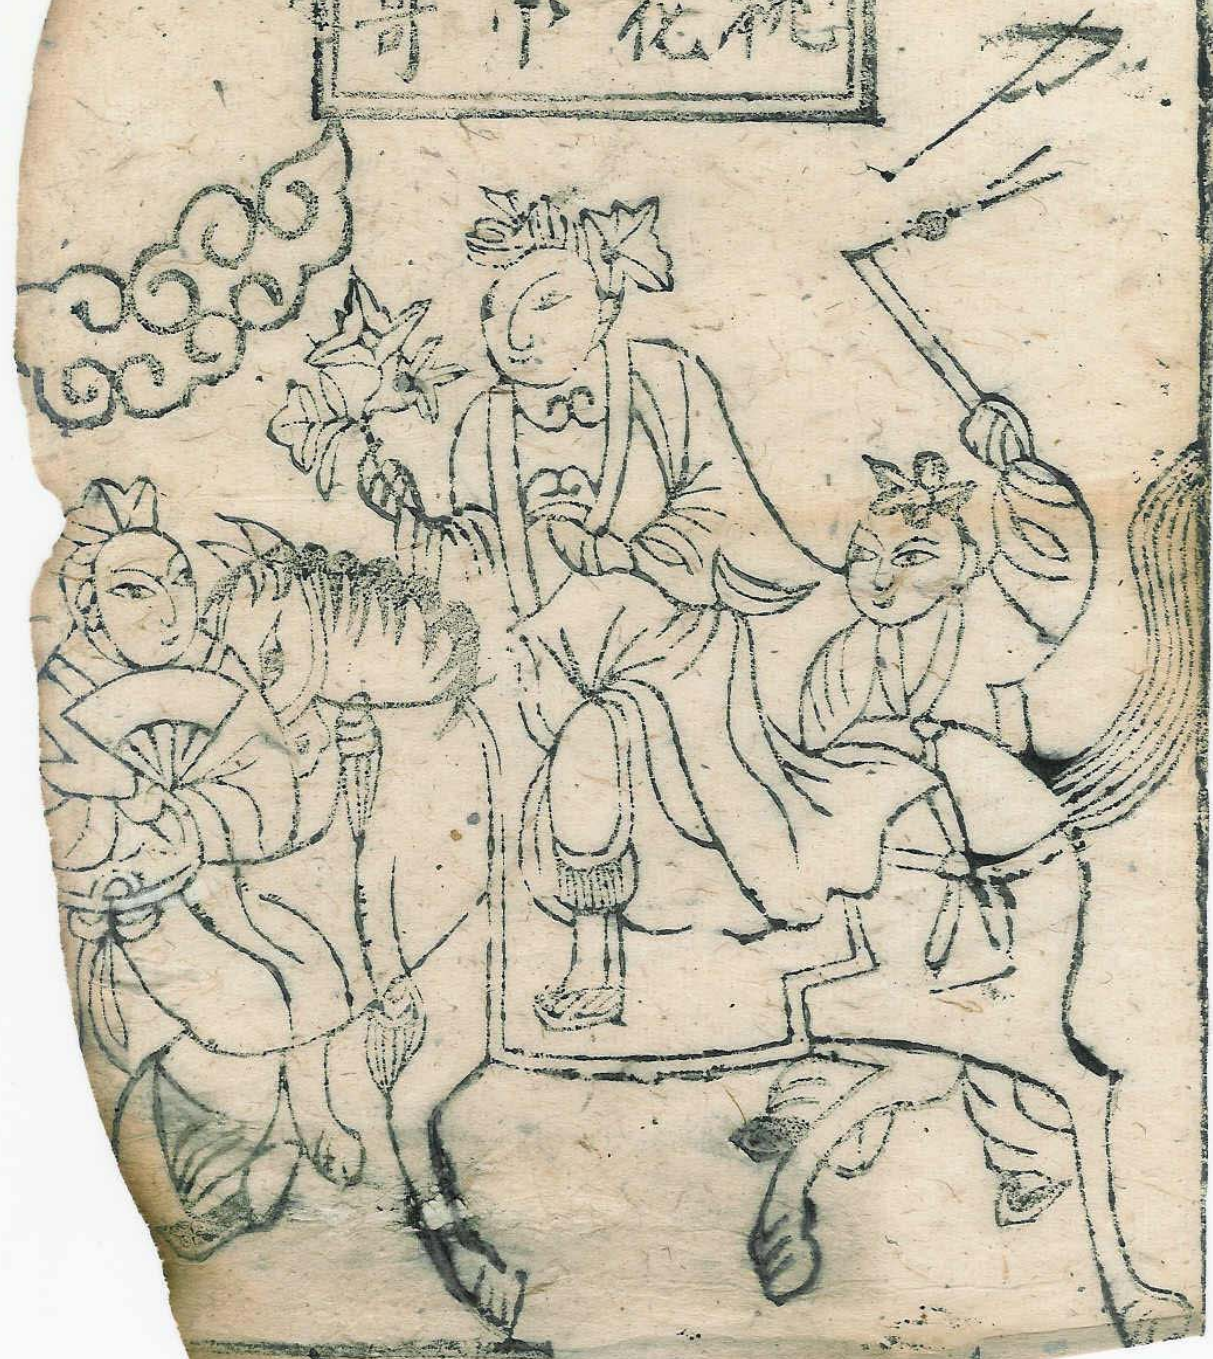 桃花小哥